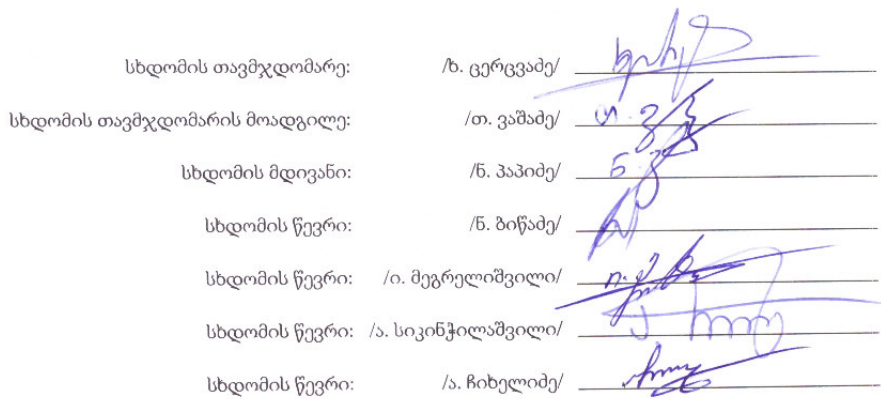 სხდომის თავმჯდომარე: /ხ. ცერცვაძე/
სხდომის თავმჯდომარის მოადგილე: /თ. ვაშაძე/
სხდომის მდივანი: /ნ. პაპიძე/
სხდომის წევრი: /ნ. ბიწაძე/
სხდომის წევრი: /ი. მეგრელიშვილი/
სხდომის წევრი: /ა. სიკინჭილაშვილი/
სხდომის წევრი: /ა. ჩიხელიძე/